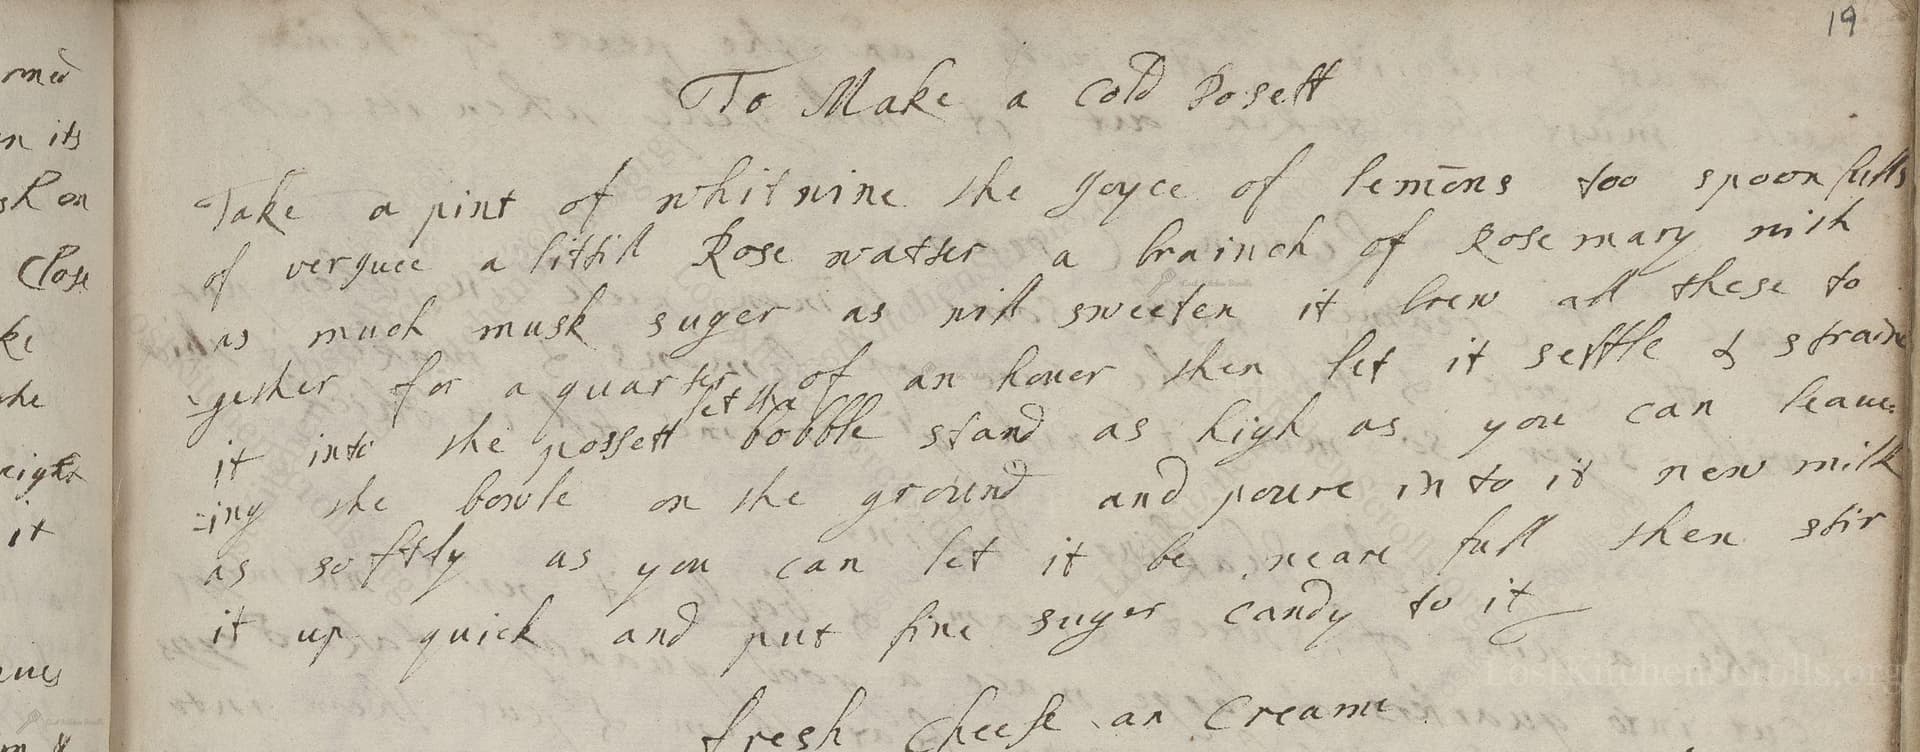 19
To Make a Cold Posett
Take a pint of whitwine the Joyce of lemons too spoonfulls
of verguce a littill Rose watter a brainch of Rosemary with
as much musk suger as will sweeten it brew all these to
-gether for a quarter of an houer then let it settle & straine
let the
it into the possett bobble stand as high as you can leaue
=ing the bowle on the ground and poure in to it new milk
as softly as you can let it be neare full then stir
it up quick and put fine suger candy to it
fresh Cheese an Creame
n its
Close
ke
the
it
LostKitchenScrolls.org